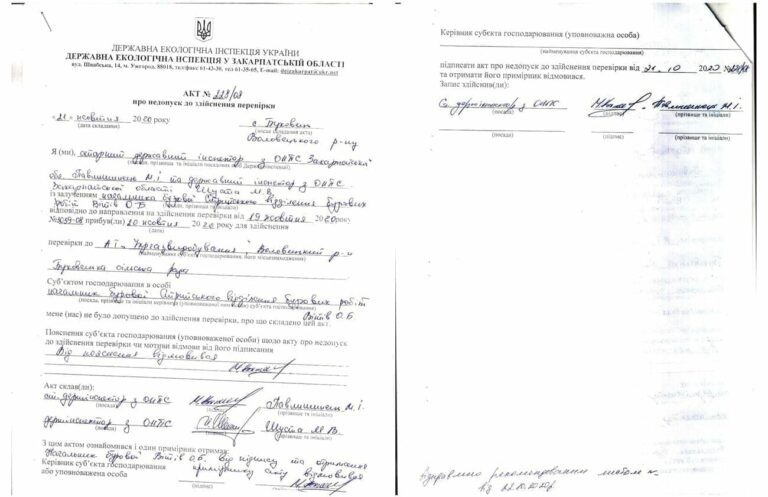 ДЕРЖАВНА ЕКОЛОГІЧНА ІНСПЕКЦІЯ УКРАЇНИ
ДЕРЖАВНА ЕКОЛОГІЧНА ІНСПЕКЦІЯ У ЗАКАРПАТСЬКІЙ ОБЛАСТІ
вул. Швабська, 14, м. Ужгород, 88018, тел/факс 61-43-30, тел 61-35-65, E-mail: deizakarpat@ukr.net
АКТ № 228/08
про недопуск до здійснення перевірки
«21» жовтня 2020 року с. Буковець
(дата складання) (місце складання акта)
Воловецького р-ну
Я (ми), старший державний інспектор з ОНПС Закарпатської
обл. Павлишинець М.І. та державний інспектор з ОНПС
Закарпатської області Шуста М.В.
із залученням начальника бурової Стрийського відділення бурових
робіт Вітів О.Б.
відповідно до направлення на здійснення перевірки від 19 жовтня 2020 року
№ 3039-08 прибув(ли) 20 жовтня 2020 року для здійснення
(дата)
перевірки до АТ "Укргазвидобування", Воловецький р-н
(найменування суб'єкта господарювання, його місцезнаходження)
Буковецька сільська рада
Суб'єктом господарювання в особі
начальник бурової Стрийського відділення бурових робіт
Вітів О.Б.
мене (нас) не було допущено до здійснення перевірки, про що складено цей акт.
Пояснення суб'єкта господарювання (уповноваженої особи) щодо акту про недопуск
до здійснення перевірки чи мотиви відмови від його підписання
Від пояснення відмовився
Акт склав(ли):
ст. держінспектор з ОНПС Павлишинець М.І.
(посада) (підпис) (прізвище та ініціали)
держінспектор з ОНПС Шуста М.В.
(посада) (підпис) (прізвище та ініціали)
З цим актом ознайомився і один примірник отримав:
Начальник бурової Вітів О.Б. від підпису та отримання
Керівник суб'єкта господарювання примірнику акту відмовився
або уповноважена особа
Керівник суб'єкта господарювання (уповноважна особа)
(найменування суб'єкта господарювання)
підписати акт про недопуск до здійснення перевірки від 21.10 2020 № 228/08
та отримати його примірник відмовився.
Запис здійснив(ли):
Ст. держінспектор з ОНПС Павлишинець М.І.
(посада) (підпис) (прізвище та ініціали)
(посада) (підпис) (прізвище та ініціали)
Відправлено рекомендованим листом
від 22.10.2020р.